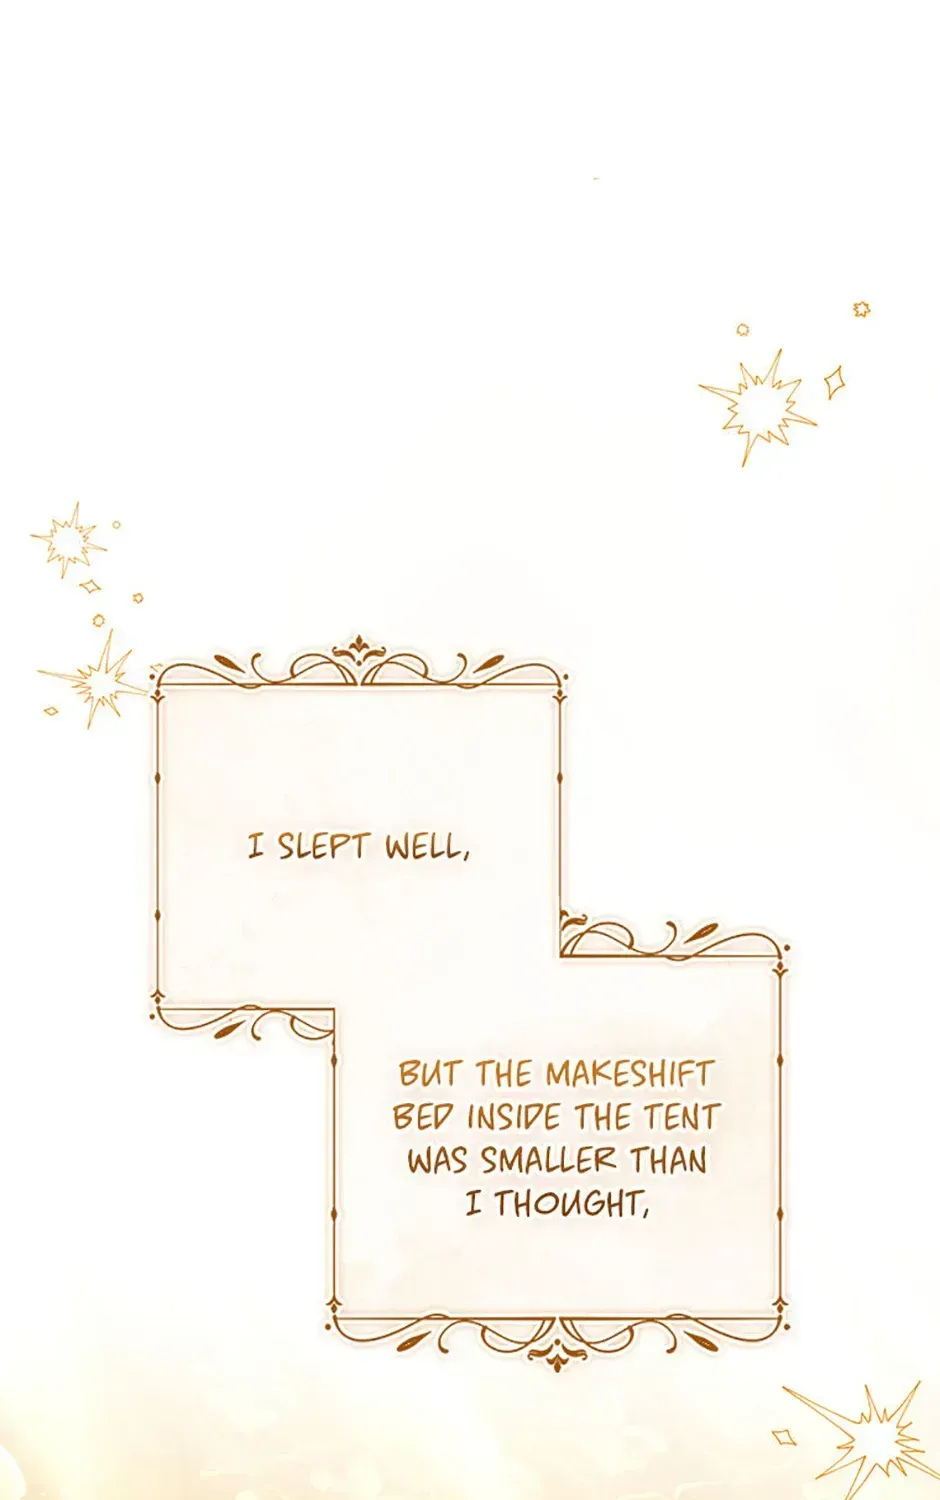 I SLEPT WELL,
BUT THE MAKESHIFT
BED INSIDE THE TENT
WAS SMALLER THAN
I THOUGHT,